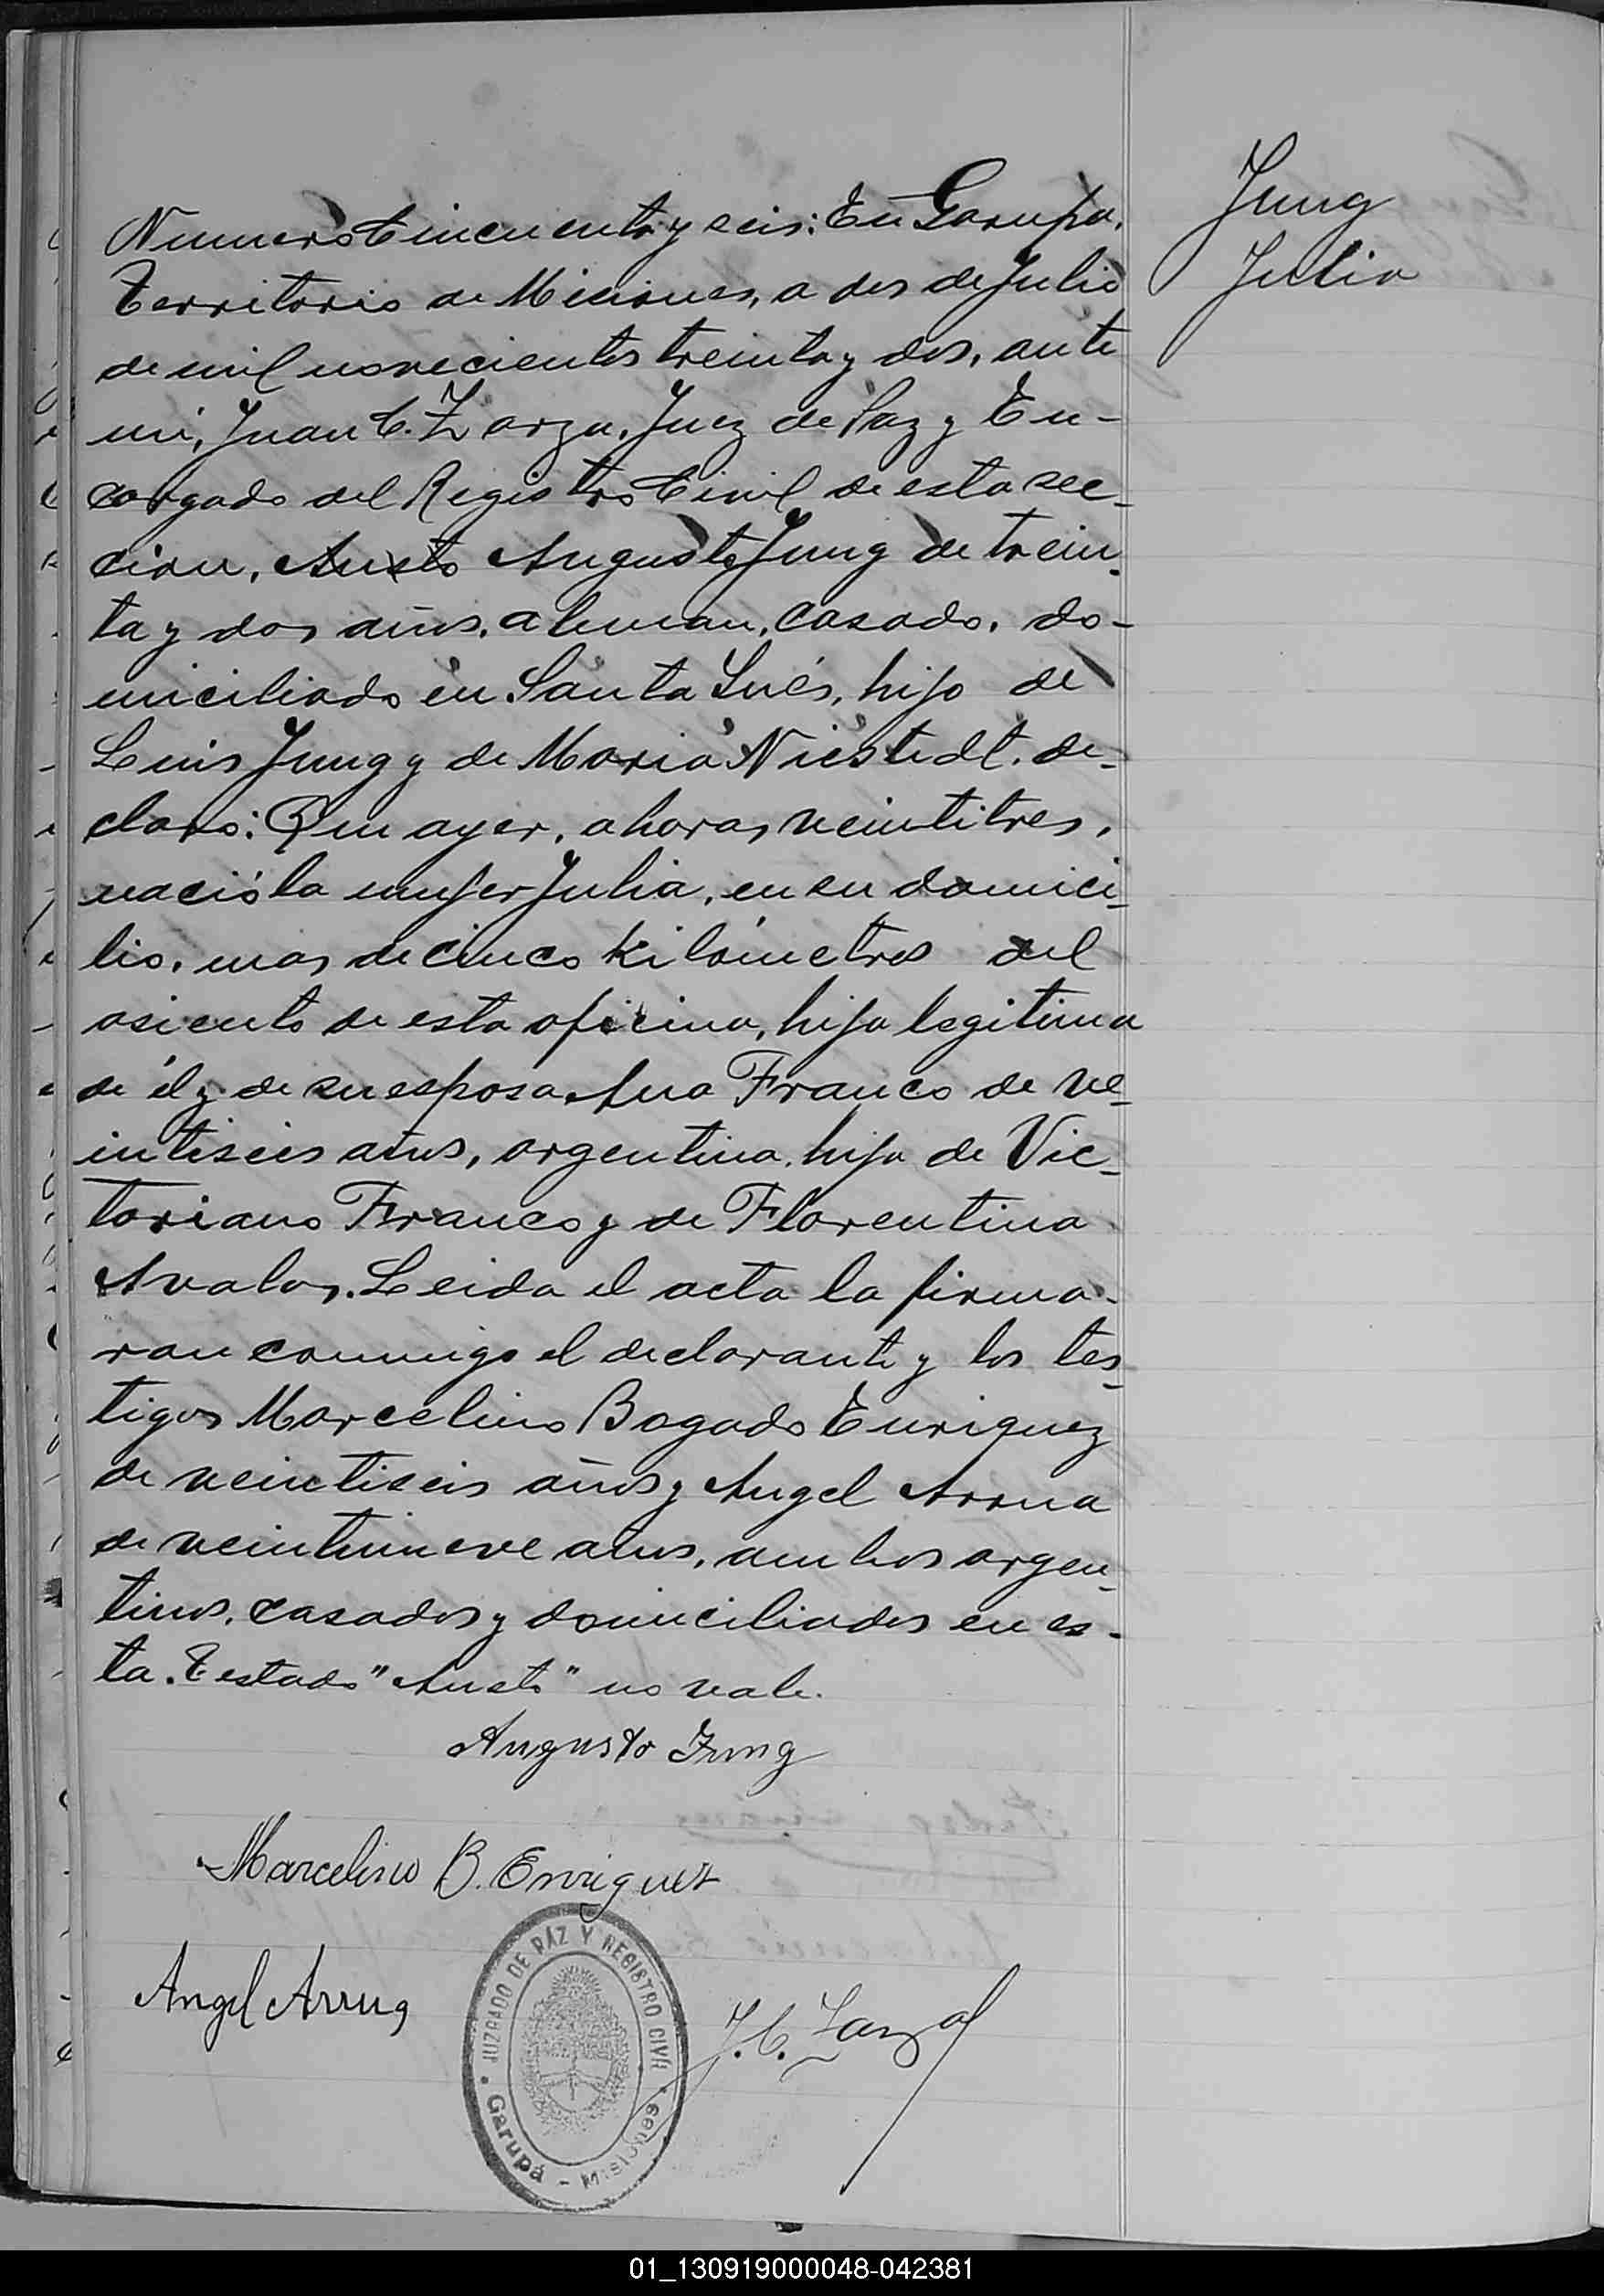 Jung
Julia
Numero Cincuenta y seis: En Garupá,
Territorio de Misiones, a dos de Julio
de mil novecientos treinta y dos, ante
mi, Juan C. Zarza, Juez de Paz y En-
cargado del Registro Civil de esta sec-
cion, Austo Augusto Jung de trein-
ta y dos años, aleman, casado, do-
miciliado en Santa Inés, hijo de
Luis Jung y de Maria Niestedt, de-
claró: Que ayer, a horas veintitres,
nació la mujer Julia, en su domici-
lio, mas de cinco kilómetros del
asiento de esta oficina, hija legitima
de él y de su esposa Ana Franco de ve-
intiseis años, argentina, hija de Vic-
toriano Franco y de Florentina
Avalos. Leida el acta la firma-
ron conmigo el declarante y los tes-
tigos Marcelino Bogado Enriquez
de veintiseis años y Angel Arrua
de veintinueve años, ambos argen-
tinos, casados y domiciliados en es-
ta. Testado "Austo" no vale.
Augusto Jung
Marcelino B. Enriquez
Angel Arrua
J. C. Zarza
JUZGADO DE PAZ Y REGISTRO CIVIL
Garupá - Misiones
01_130919000048-042381